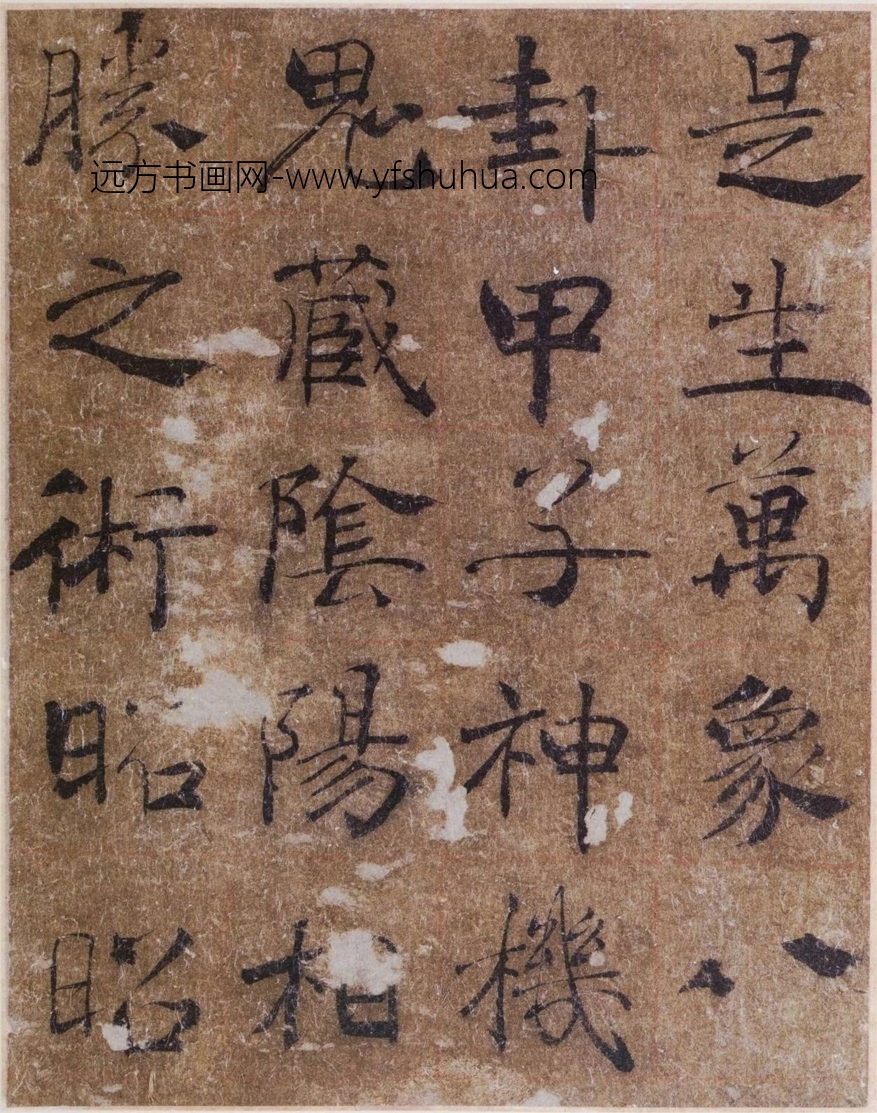 是生萬象八
卦甲子神機
鬼藏陰陽相
勝之術昭昭
远方书画网-www.yfshuhua.com